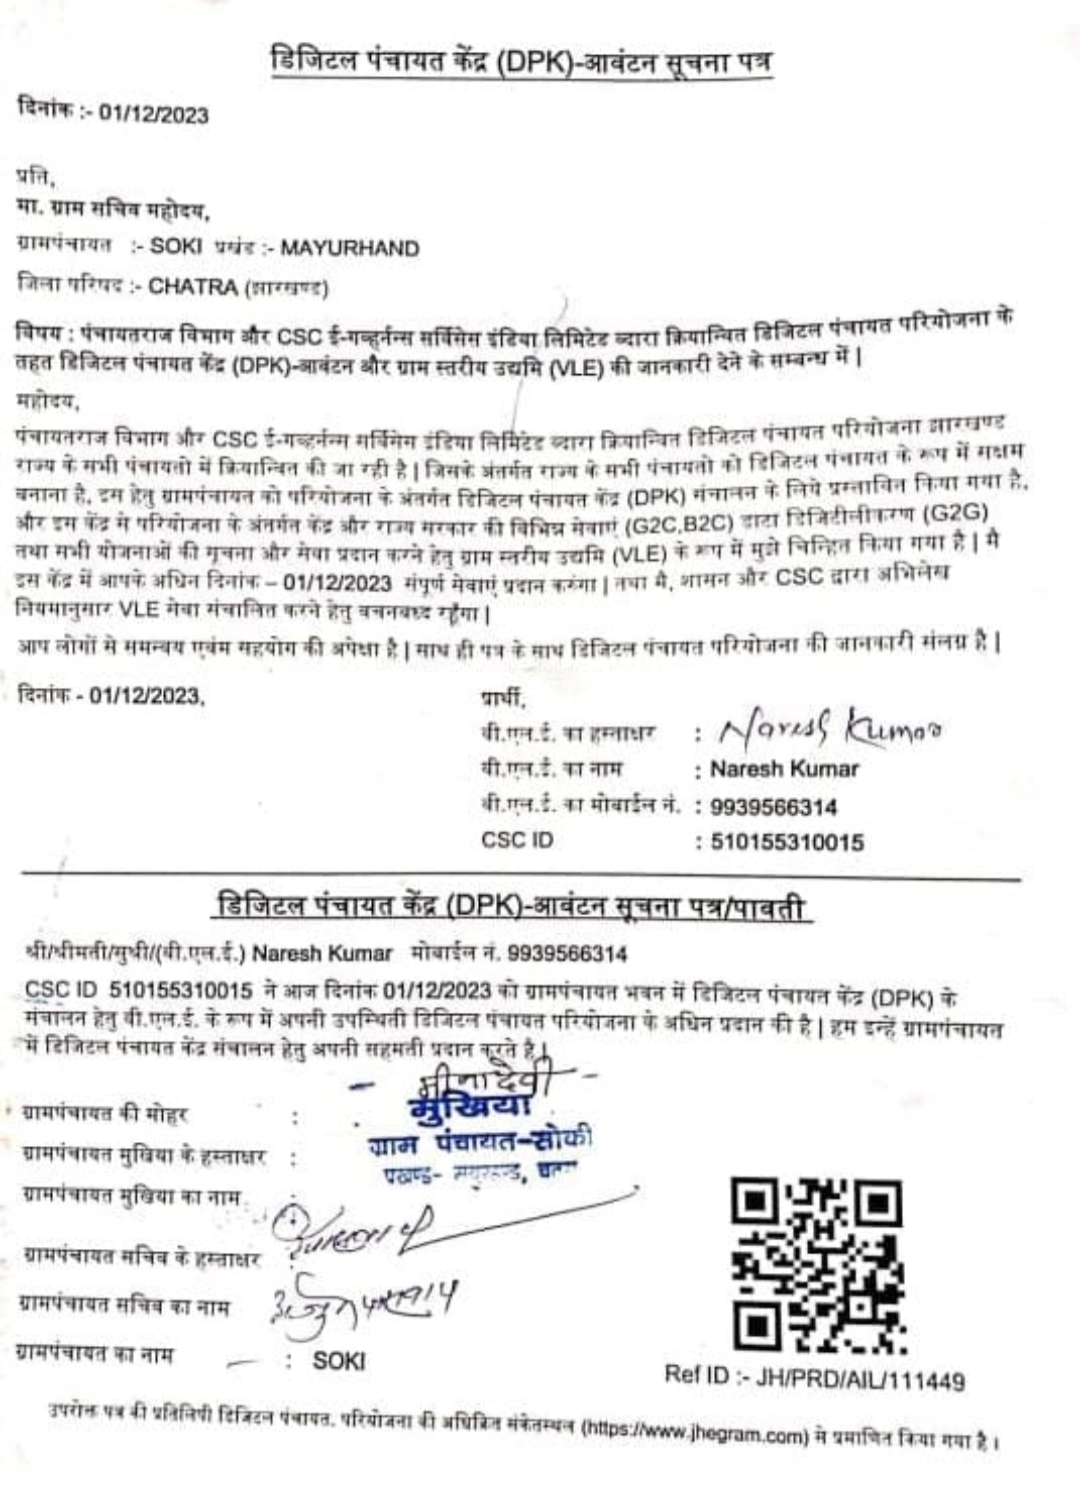 डिजिटल पंचायत केंद्र (DPK)-आवंटन सूचना पत्र
दिनांक :- 01/12/2023
प्रति,
मा. ग्राम सचिव महोदय,
ग्रामपंचायत :- SOKI प्रखंड :- MAYURHAND
जिला परिषद :- CHATRA (झारखण्ड)
विषय : पंचायतराज विभाग और CSC ई-गव्हर्नन्स सर्विसेस इंडिया लिमिटेड व्दारा क्रियान्वित डिजिटल पंचायत परियोजना के
तहत डिजिटल पंचायत केंद्र (DPK)-आवंटन और ग्राम स्तरीय उद्यमि (VLE) की जानकारी देने के सम्बन्ध में |
महोदय,
पंचायतराज विभाग और CSC ई-गव्हर्नन्स सर्विसेस इंडिया लिमिटेड व्दारा क्रियान्वित डिजिटल पंचायत परियोजना झारखण्ड
राज्य के सभी पंचायतो में क्रियान्वित की जा रही है | जिसके अंतर्गत राज्य के सभी पंचायतो को डिजिटल पंचायत के रूप में सक्षम
बनाना है, इस हेतु ग्रामपंचायत को परियोजना के अंतर्गत डिजिटल पंचायत केंद्र (DPK) संचालन के लिये प्रस्तावित किया गया है,
और इस केंद्र से परियोजना के अंतर्गत केंद्र और राज्य सरकार की विभिन्न सेवाएं (G2C,B2C) डाटा डिजिटीलीकरण (G2G)
तथा सभी योजनाओं की सूचना और सेवा प्रदान करने हेतु ग्राम स्तरीय उद्यमि (VLE) के रूप में मुझे चिन्हित किया गया है | मै
इस केंद्र में आपके अधिन दिनांक – 01/12/2023 संपूर्ण सेवाएं प्रदान करुंगा | तथा मै, शासन और CSC द्वारा अभिलेख
नियमानुसार VLE सेवा संचालित करने हेतु वचनबध्द रहूँगा |
आप लोगों से समन्वय एवंम सहयोग की अपेक्षा है | साथ ही पत्र के साथ डिजिटल पंचायत परियोजना की जानकारी संलग्न है |
दिनांक - 01/12/2023,
प्रार्थी,
वी.एल.ई. का हस्ताक्षर : Naresh Kumar
वी.एल.ई. का नाम : Naresh Kumar
वी.एल.ई. का मोबाईल नं. : 9939566314
CSC ID : 510155310015
डिजिटल पंचायत केंद्र (DPK)-आवंटन सूचना पत्र/पावती
श्री/श्रीमती/सुश्री/(वी.एल.ई.) Naresh Kumar मोबाईल नं. 9939566314
CSC ID 510155310015 ने आज दिनांक 01/12/2023 को ग्रामपंचायत भवन में डिजिटल पंचायत केंद्र (DPK) के
संचालन हेतु वी.एल.ई. के रूप में अपनी उपस्थिती डिजिटल पंचायत परियोजना के अधिन प्रदान की है | हम इन्हें ग्रामपंचायत
में डिजिटल पंचायत केंद्र संचालन हेतु अपनी सहमती प्रदान करते है |
मीना देवी
मुखिया
ग्रामपंचायत की मोहर :
ग्राम पंचायत-सोकी
ग्रामपंचायत मुखिया के हस्ताक्षर :
प्रखण्ड- मयुरहण्ड, चतरा
ग्रामपंचायत मुखिया का नाम :
ग्रामपंचायत सचिव के हस्ताक्षर
ग्रामपंचायत सचिव का नाम
ग्रामपंचायत का नाम : SOKI
Ref ID :- JH/PRD/AIL/111449
उपरोक्त पत्र की प्रतिलिपी डिजिटल पंचायत. परियोजना की अधिक्रित संकेतस्थल (https://www.jhegram.com) से प्रमाणित किया गया है ।